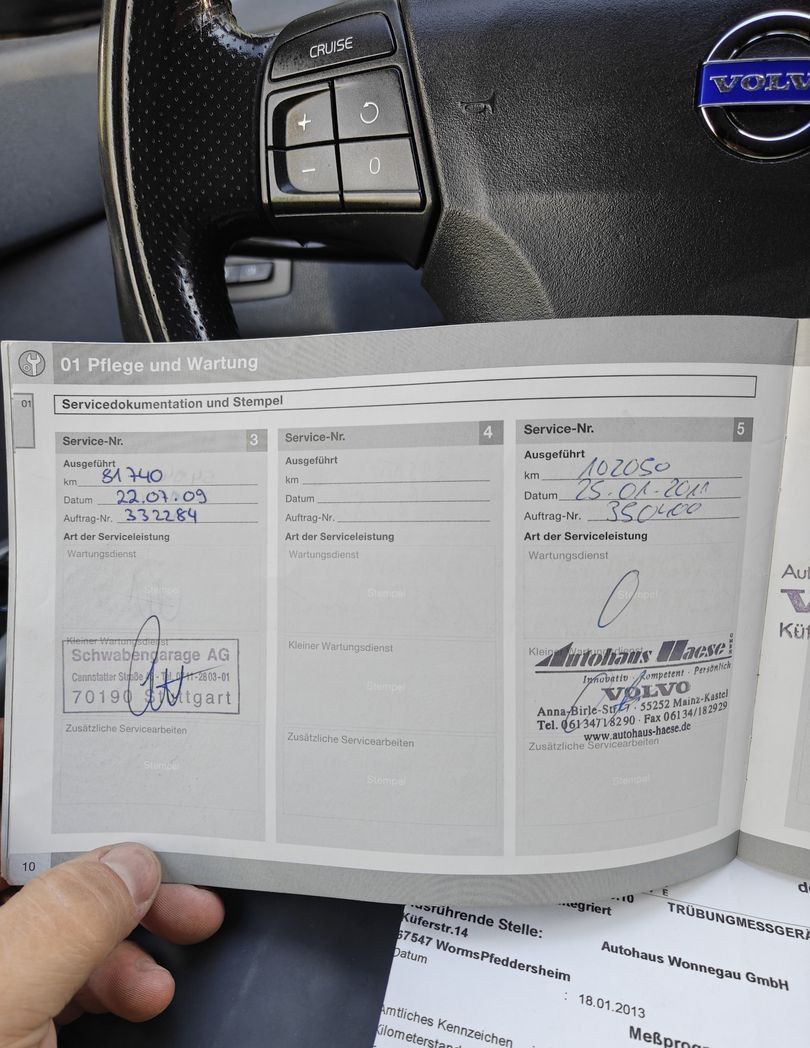 CRUISE
+
−
0
VOLV
01 Pflege und Wartung
01
Servicedokumentation und Stempel
Service-Nr. 3
Ausgeführt
km 81740
Datum 22.07.09
Auftrag-Nr. 332284
Art der Serviceleistung
Wartungsdienst
Stempel
Kleiner Wartungsdienst
Schwabengarage AG
Cannstatter Straße
70190 Stuttgart
Zusätzliche Servicearbeiten
Stempel
10
Service-Nr. 4
Ausgeführt
km
Datum
Auftrag-Nr.
Art der Serviceleistung
Wartungsdienst
Stempel
Kleiner Wartungsdienst
Stempel
Zusätzliche Servicearbeiten
Stempel
Service-Nr. 5
Ausgeführt
km 102050
Datum 25.01.2011
Auftrag-Nr. 350400
Art der Serviceleistung
Wartungsdienst
Stempel
Autohaus Haese
Innovativ · Kompetent · Persönlich
VOLVO
55252 Mainz-Kastel
Tel. 06134/18290 · Fax 06134/182929
www.autohaus-haese.de
Zusätzliche Servicearbeiten
Stempel
Aut
V
Küf
TRÜBUNGMESSGERÄ
ausführende Stelle:
Küferstr.14
67547 WormsPfeddersheim
Autohaus Wonnegau GmbH
Datum : 18.01.2013
Amtliches Kennzeichen
Kilometerstan
Meßprog